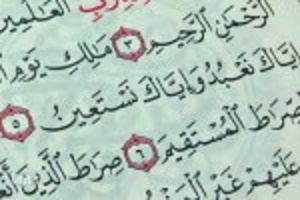 الْعَلَمِينَ
الرَّحْمَٰنِ الرَّحِيمِ ٣ مَٰلِكِ يَوْمِ
إِيَّاكَ نَعْبُدُ وَإِيَّاكَ نَسْتَعِينُ ٥
صِرَٰطَ الْمُسْتَقِيمَ ٦ صِرَٰطَ الَّذِينَ
عَلَيْهِمْ غَيْرِ